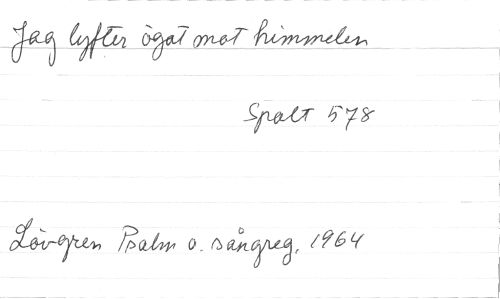 Jag lyfter ögat mot himmelen
Spalt 578
Lövgren Psalm o. sångreg. 1964